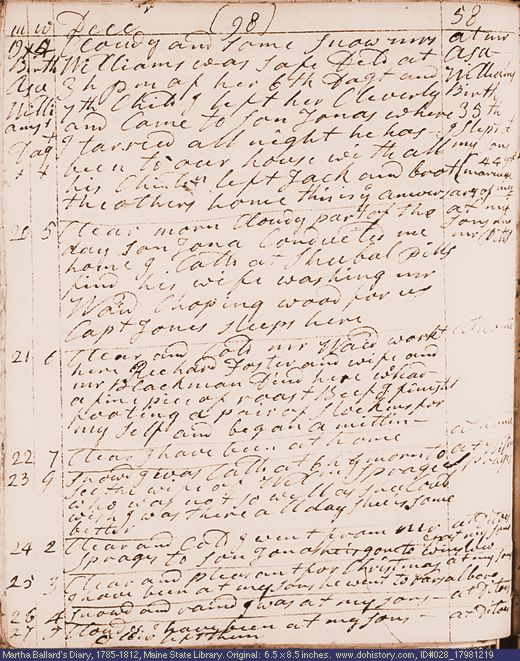 m w Decc (98) 58
19 4 Cloudy and Some Snow mrs at mr
Birth Williams was Safe Deld at Asa
Asa 3 h pm of her 6th Dagt and Williams
Willi 7th Child I left her Cleverly Birth
ams's and Came to Son Jonas where 35th
Dag I tarried all night he has I Slept at
been to our house with all my sons
his Children left Jack and 44 years
the others home this is ye anversary of my marriage
20 5 Clear morn Cloudy part of the at my
day Son Jona Conducted me Sons and
home I Calld at Shubal Pitts mr Pitts
find his wife washing mr
Ward Choping wood for us
Capt Jones Sleeps here
21 6 Clear and Cold mr Ward workt at home
here Richard Foster and wife and
mr Blackman Dind here we had
a fine piece of roast Beef I finisht
footing a pair of Stockins for
my Self and began a mitten
22 7 Clear I have been at home at home
23 9 Snowd I was Calld at 6 h morn to
See the wife of Sprague
who was not so well as
wisht I was there all day shee is some
better
24 2 Clear and Cold I went from mr
Spragues to Son Jonas he is gone to Winslow
25 3 Clear and Pleasant for Christmas at my Sons
I have been at my Sons he went to
26 4 Snowd and raind I was at my Sons at Ditoes
27 5 Cloudy I have been at my Sons at Ditoes
Martha Ballard's Diary, 1785-1812, Maine State Library. Original: 6.5 x 8.5 inches. www.dohistory.com, ID#028_17981219